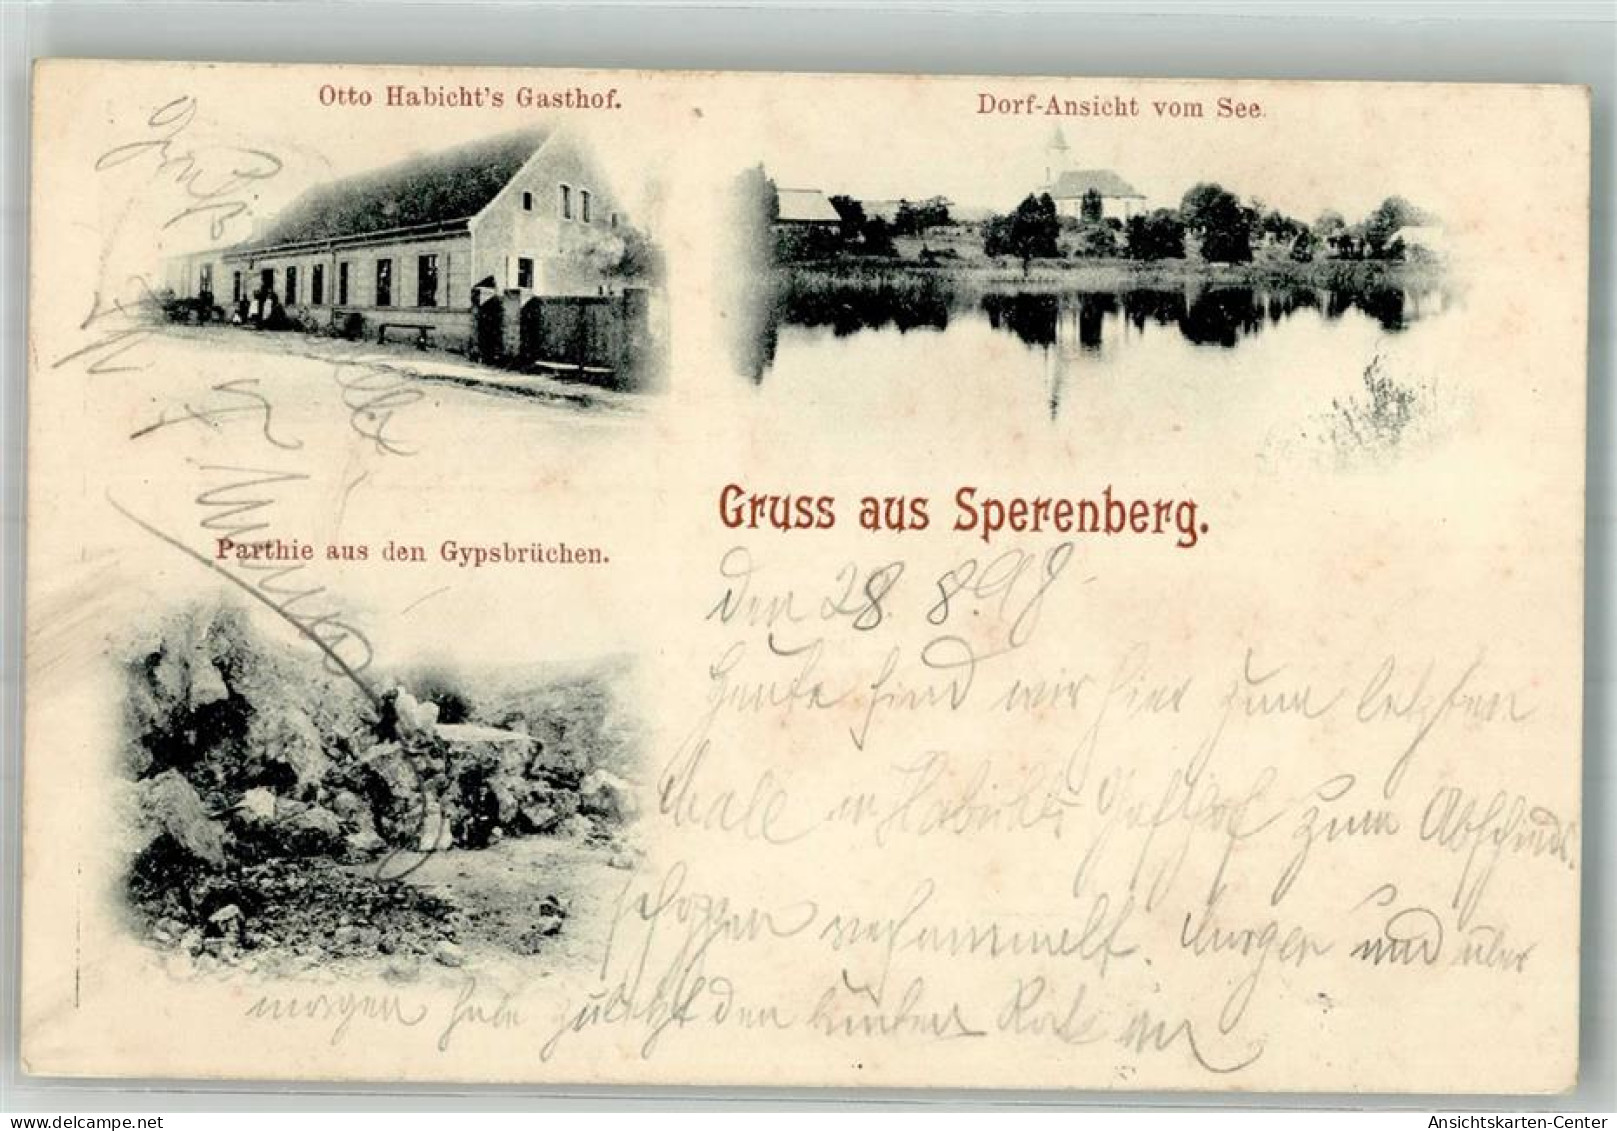 Otto Habicht's Gasthof.
Dorf-Ansicht vom See.
Gruss aus Sperenberg.
Parthie aus den Gypsbrüchen.
den 28. 8. 98
Heute sind wir hier zum letzten
Male in Habichts Gasthof zum Abschieds-
schoppen versammelt. Morgen und über
morgen habe zuletzt den bunten Rock an
Gruß
Ansichtskarten-Center